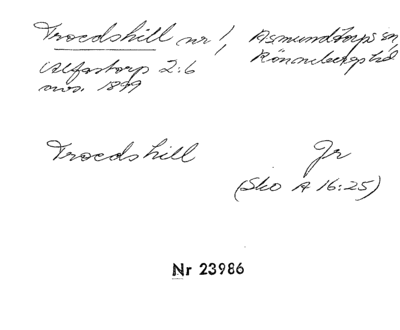 Troedshill nr 1, Asmundtorps sn,
Ulfastorp 2:6 Rönnebergs hd
avs. 1899
Troedshill Jr
(Sko A 16:25)
Nr 23986